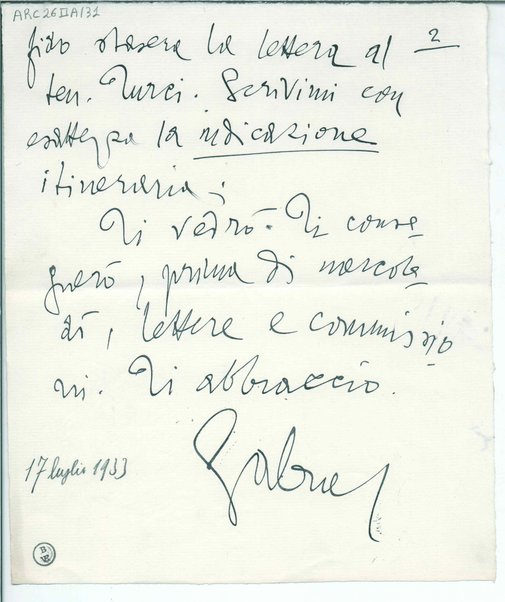 ARC26 II A/31
2
fido stasera la lettera al
ten. Turci. Scrivimi con
esattezza la indicazione
itineraria:
Ti vedrò. Ti conse-
gnerò, prima di mercole-
dì, lettere e commissio
ni. Ti abbraccio.
Gabriel
17 luglio 1933